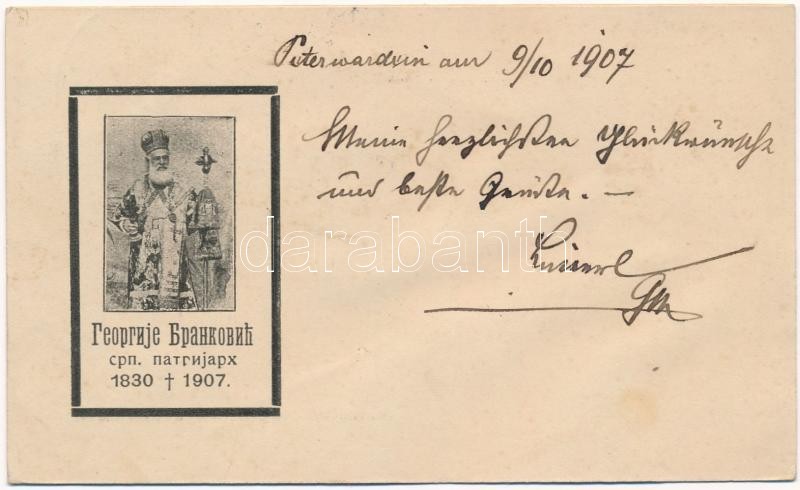 Peterwardein am 9/10 1907
Meine herzlichsten Glückwünsche
und beste Grüsse. —
Георгије Бранковић
срп. патријарх
1830 † 1907.
darabanth